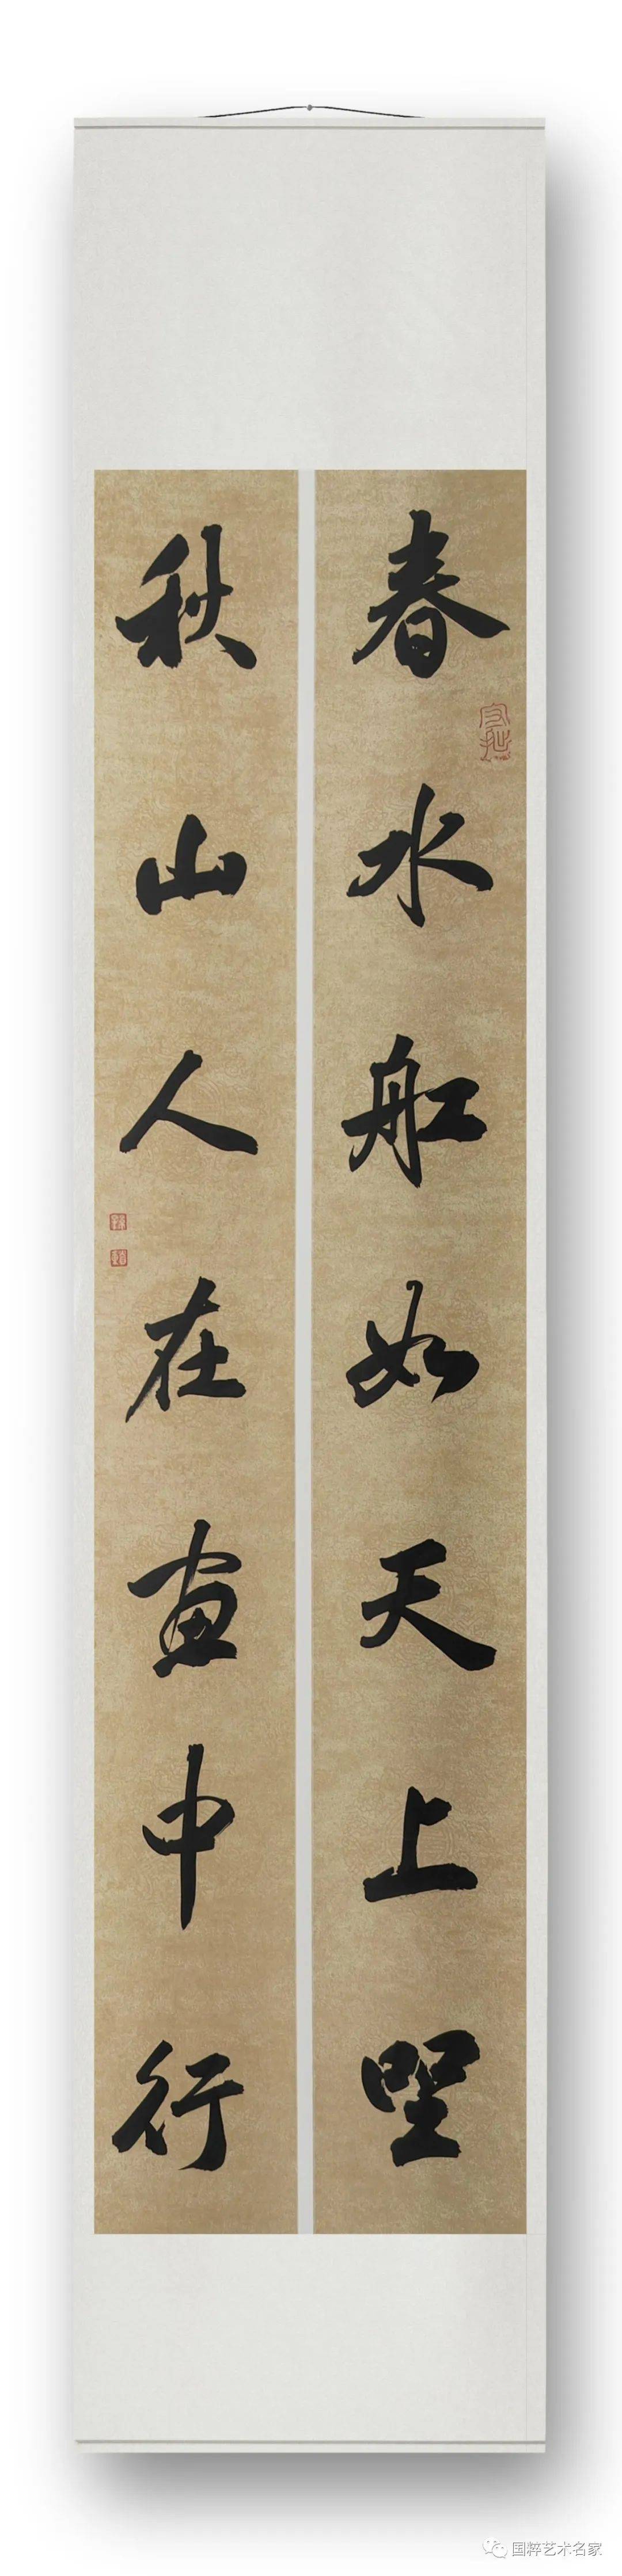 春水舡如天上坐
守拙
秋山人在画中行
国粹艺术名家